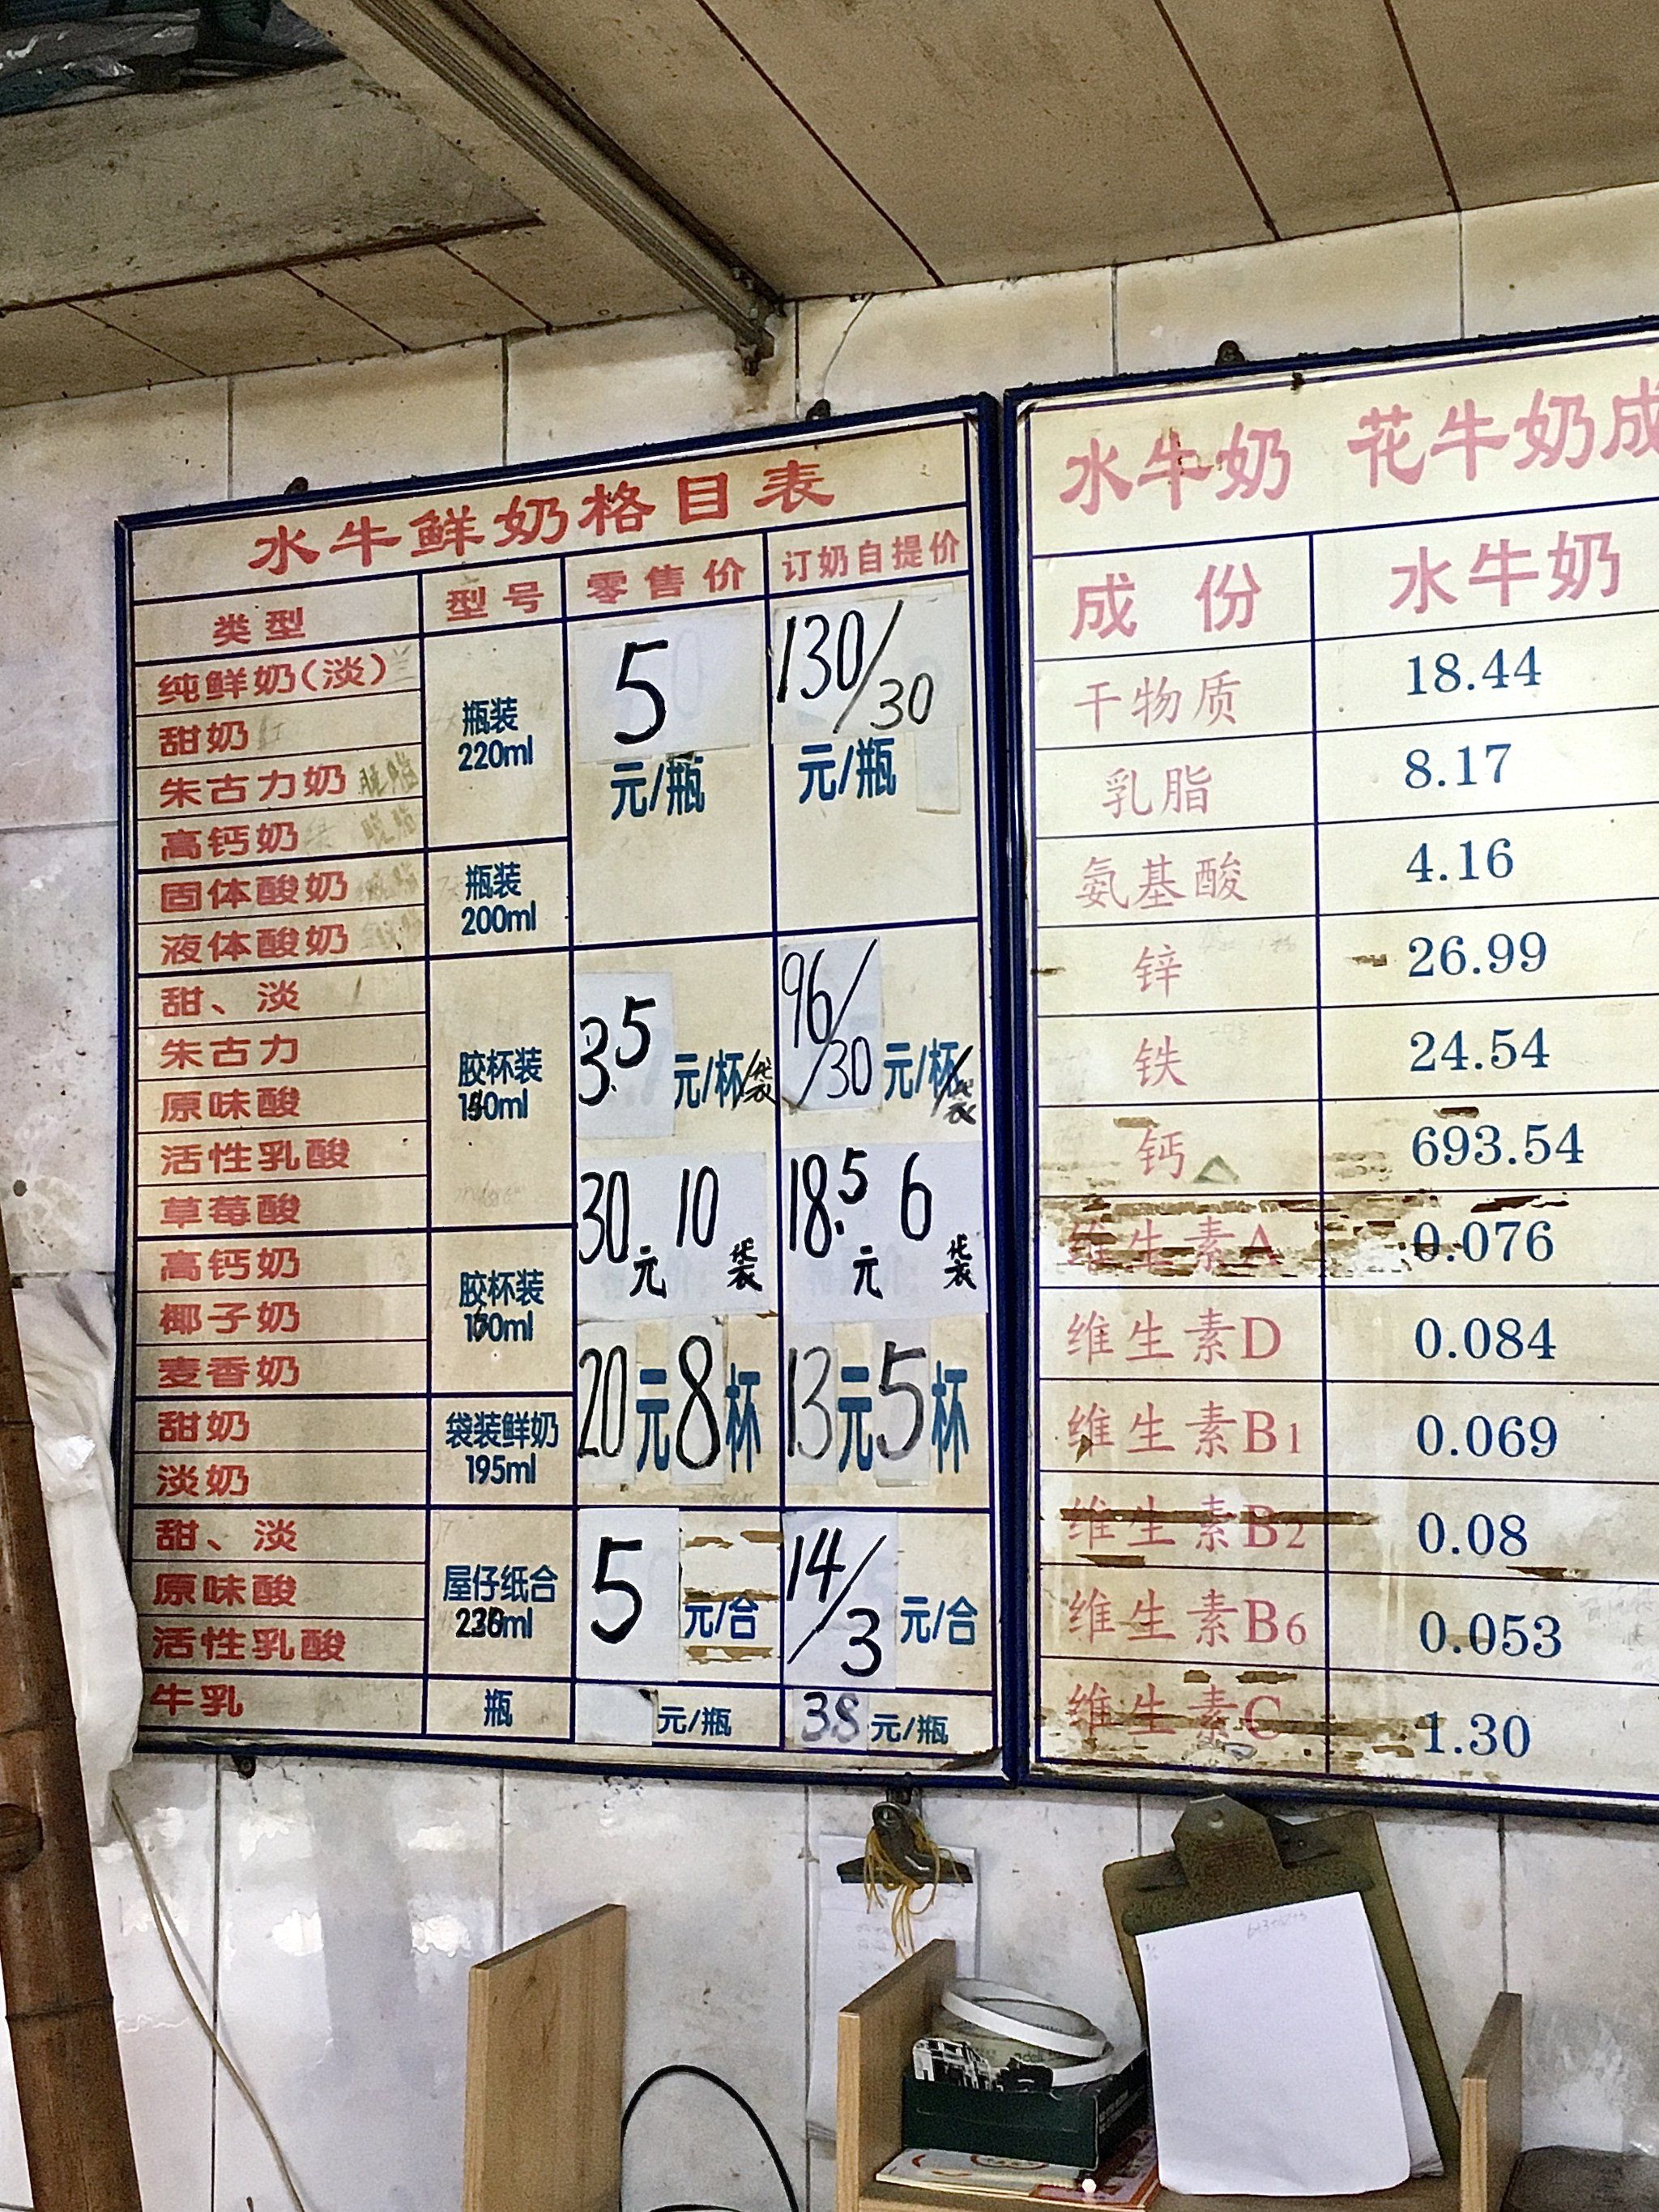 水牛鲜奶格目表
类型 型号 零售价 订奶自提价
纯鲜奶(淡)
甜奶
朱古力奶 脱脂
高钙奶 脱脂
瓶装
220ml
固体酸奶
液体酸奶
瓶装
200ml
5
元/瓶
130/30
元/瓶
甜、淡
朱古力
原味酸
活性乳酸
草莓酸
胶杯装
3.5 元/杯/袋
96/30 元/杯/袋
高钙奶
椰子奶
麦香奶
胶杯装
30元10袋
18.5元6袋
甜奶
淡奶
袋装鲜奶
195ml
20元8杯
13元5杯
甜、淡
原味酸
活性乳酸
屋仔纸合
5 元/合
14/3 元/合
牛乳 瓶 元/瓶 38元/瓶
水牛奶 花牛奶成
成份 水牛奶
干物质 18.44
乳脂 8.17
氨基酸 4.16
锌 26.99
铁 24.54
钙 693.54
维生素A 0.076
维生素D 0.084
维生素B1 0.069
维生素B2 0.08
维生素B6 0.053
维生素C 1.30